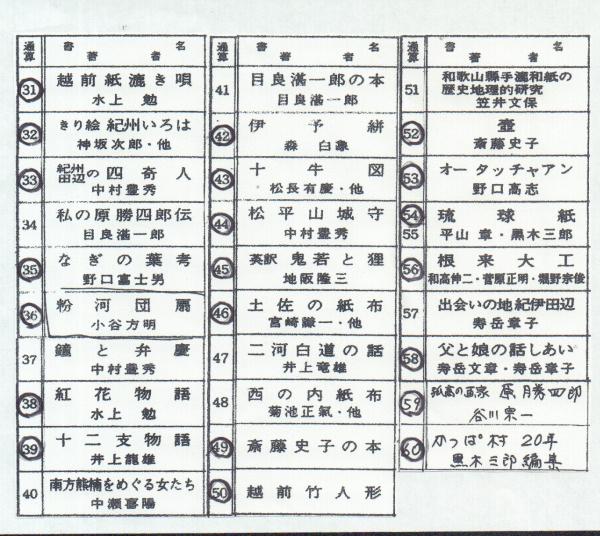 通算 書名 著者
31 越前紙漉き唄
水上 勉
32 きり絵 紀州いろは
神坂次郎・他
33 紀州田辺の四奇人
中村豊秀
34 私の原勝四郎伝
目良滿一郎
35 なぎの葉考
野口富士男
36 粉河団扇
小谷方明
37 鐘と弁慶
中村豊秀
38 紅花物語
水上 勉
39 十二支物語
井上龍雄
40 南方熊楠をめぐる女たち
中瀬喜陽
通算 書名 著者
41 目良滿一郎の本
目良滿一郎
42 伊予絣
森 白象
43 十牛図
松長有慶・他
44 松平山城守
中村豊秀
45 英訳 鬼若と狸
地阪隆三
46 土佐の紙布
宮崎謙一・他
47 二河白道の話
井上竜雄
48 西の内紙布
菊池正氣・他
49 斎藤史子の本
50 越前竹人形
通算 書名 著者
51 和歌山縣手漉和紙の
歴史地理的研究
笠井文保
52 壺
斎藤史子
53 オータッチャアン
野口高志
54 琉球紙
55 平山 章・黒木三郎
56 根来大工
和高伸二・菅原正明・堀野宗俊
57 出会いの地紀伊田辺
寿岳章子
58 父と娘の話しあい
寿岳文章・寿岳章子
59 孤高の画家 原勝四郎
谷川宗一
60 かっぱ村 20年
黒木三郎編集